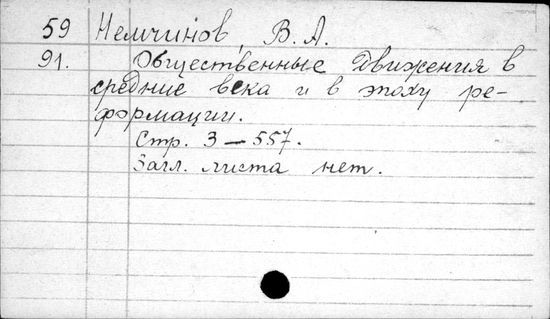 59 Немчинов, В. А.
91. Общественные движения в
средние века и в эпоху ре-
формации.
Стр. 3 – 557.
Загл. листа нет.